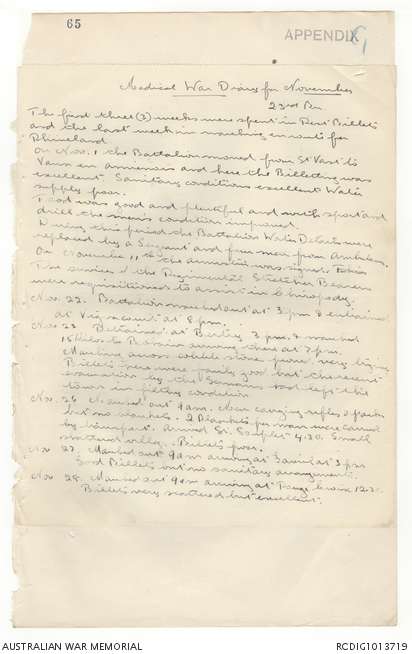 65
APPENDIX G
Medical War Diary for November
23rd Bn
The first three (3) weeks were spent in Rest Billets
and the last week in marching en route for
Rhineland
On Nov. 1 the Battalion moved from St Vast to
Vaux en Amienois and here the Billeting was
excellent. Sanitary conditions excellent Water
supply poor.
Food was good and plentiful and with sport and
drill the men's condition improved.
During this period the Battalion Water Details were
replaced by a Sergeant and four men from Ambulance.
On November 11th the armistice was signed.
The services of the Regimental Stretcher Bearers
were requisitioned to assist in Chiropody.
Nov. 22. Battalion marched out at 3 pm & entrained
at at 8 pm.
Nov 23 Detrained at 3 pm & marched
15 kilos to Bohain arriving there at 7 pm.
Marching across cobble stone road very tiring
Billets here were fairly good but the recent
evacuation by the Germans had left the
town in filthy condition
Nov. 26 Marched out 9 am. Men carrying rifles & packs
but no blankets. 2 Blankets per man were carried
by transport. Arrived St. Souplet 4.30. Small
scattered village. Billets poor.
Nov 27. Marched out 9 am arriving at 3 pm
Good Billets but no sanitary arrangements.
Nov 28. Marched out 9 am arriving at 12.30.
Billets very scattered but excellent.
AUSTRALIAN WAR MEMORIAL
RCDIG1013719